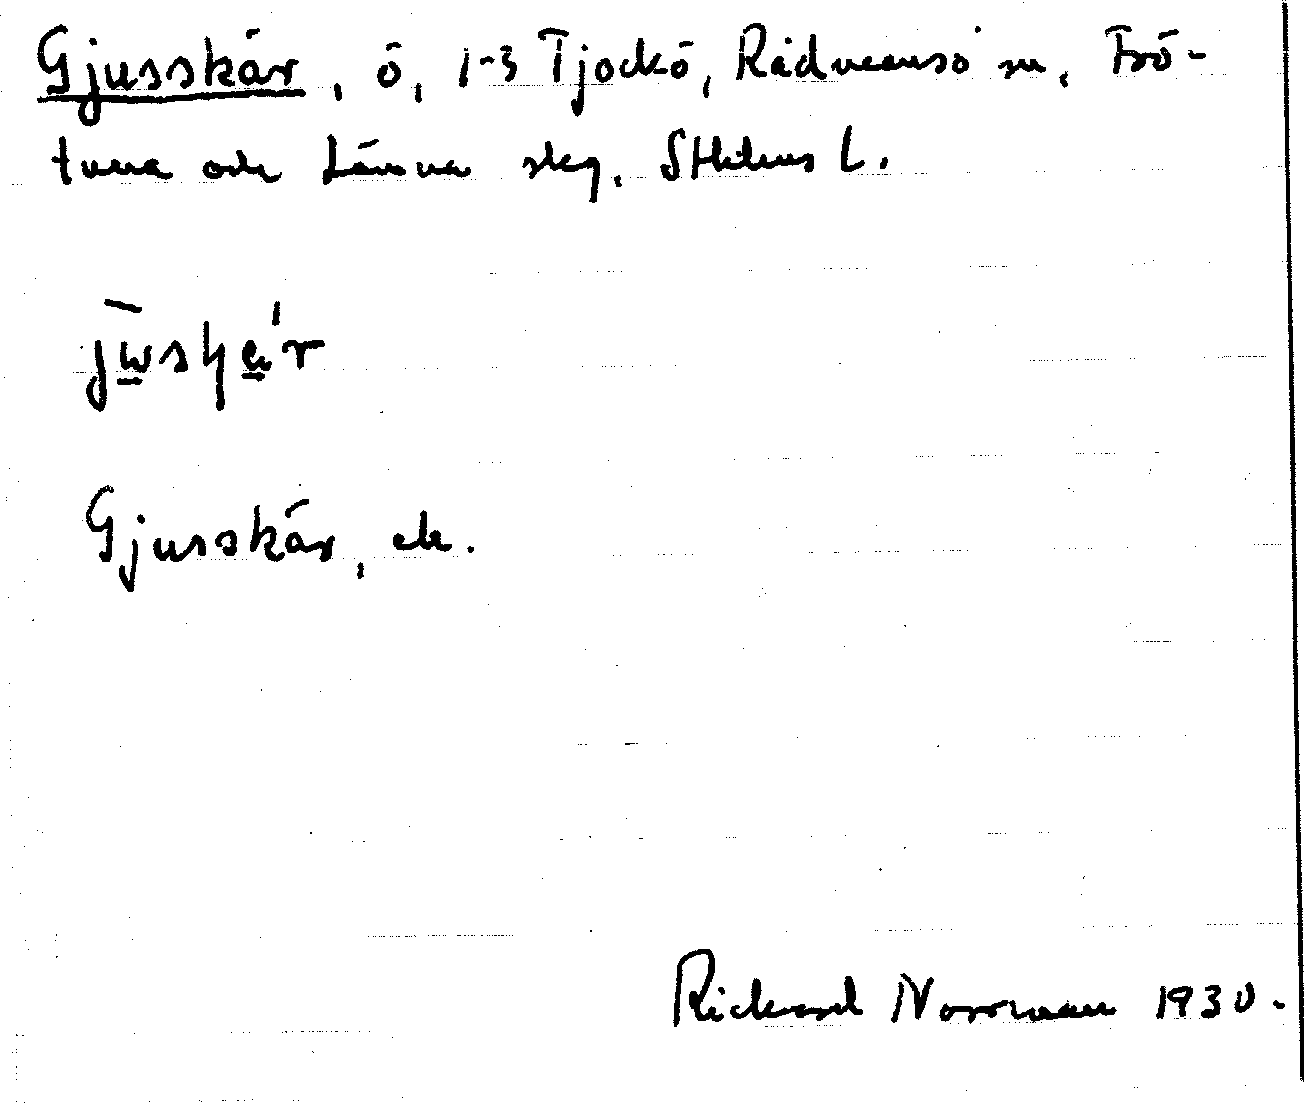 Gjusskär, ö, 1-3 Tjockö, Rådmansö sn, Frö-
tuna och Länna skg, Sthlms L.
jūsʞa'r
Gjusskär, ek.
Rickard Norrman 1930.